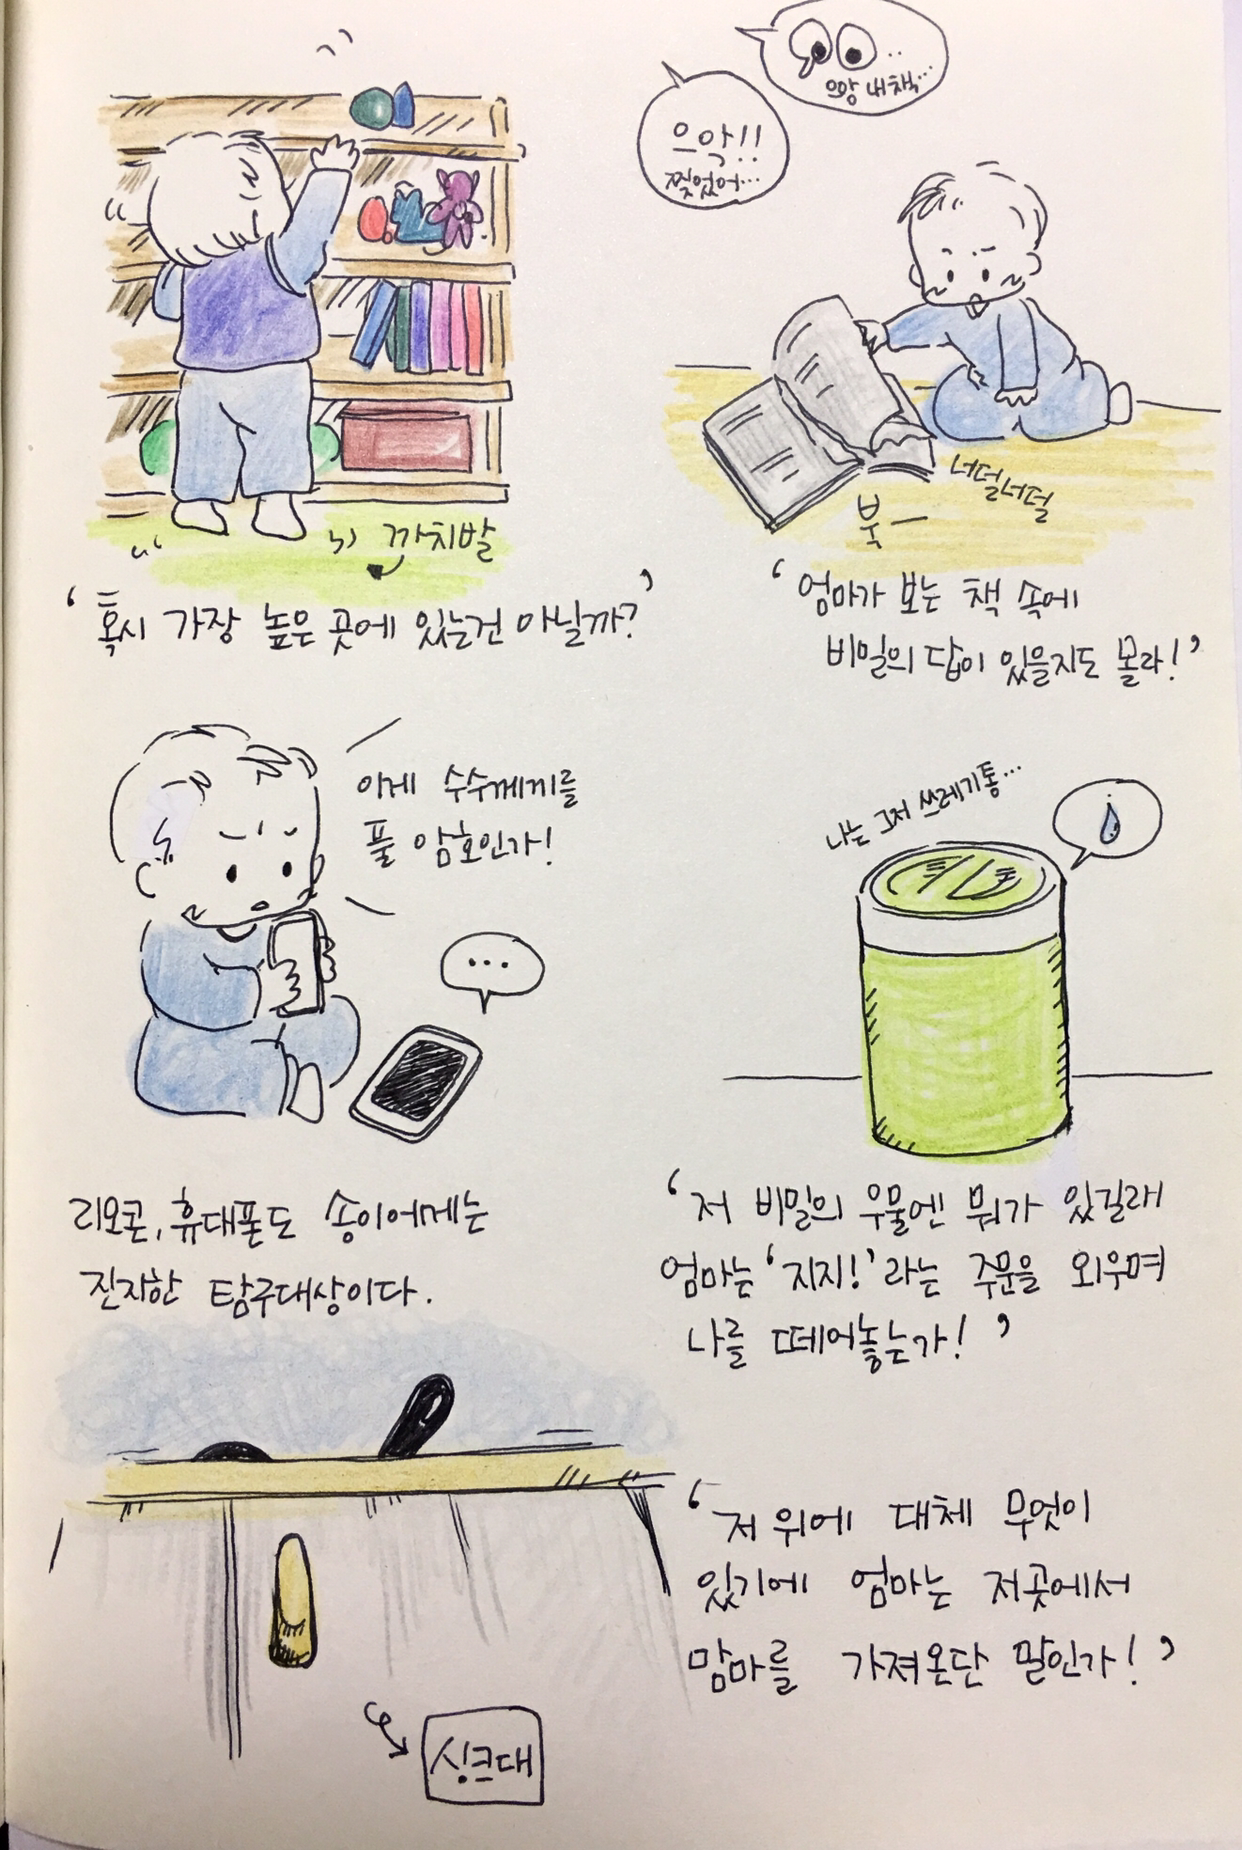 까치발
'혹시 가장 높은 곳에 있는건 아닐까?'
으앙 내 책…
으악!!
찢었어…
너덜너덜
북—
'엄마가 보는 책 속에
비밀의 답이 있을지도 몰라!'
이게 수수께끼를
풀 암호인가!
...
리모콘, 휴대폰도 송이에게는
진지한 탐구대상이다.
나는 그저 쓰레기통…
'저 비밀의 우물엔 뭐가 있길래
엄마는 '지지!' 라는 주문을 외우며
나를 떼어놓는가!'
'저 위에 대체 무엇이
있기에 엄마는 저곳에서
맘마를 가져온단 말인가!'
싱크대